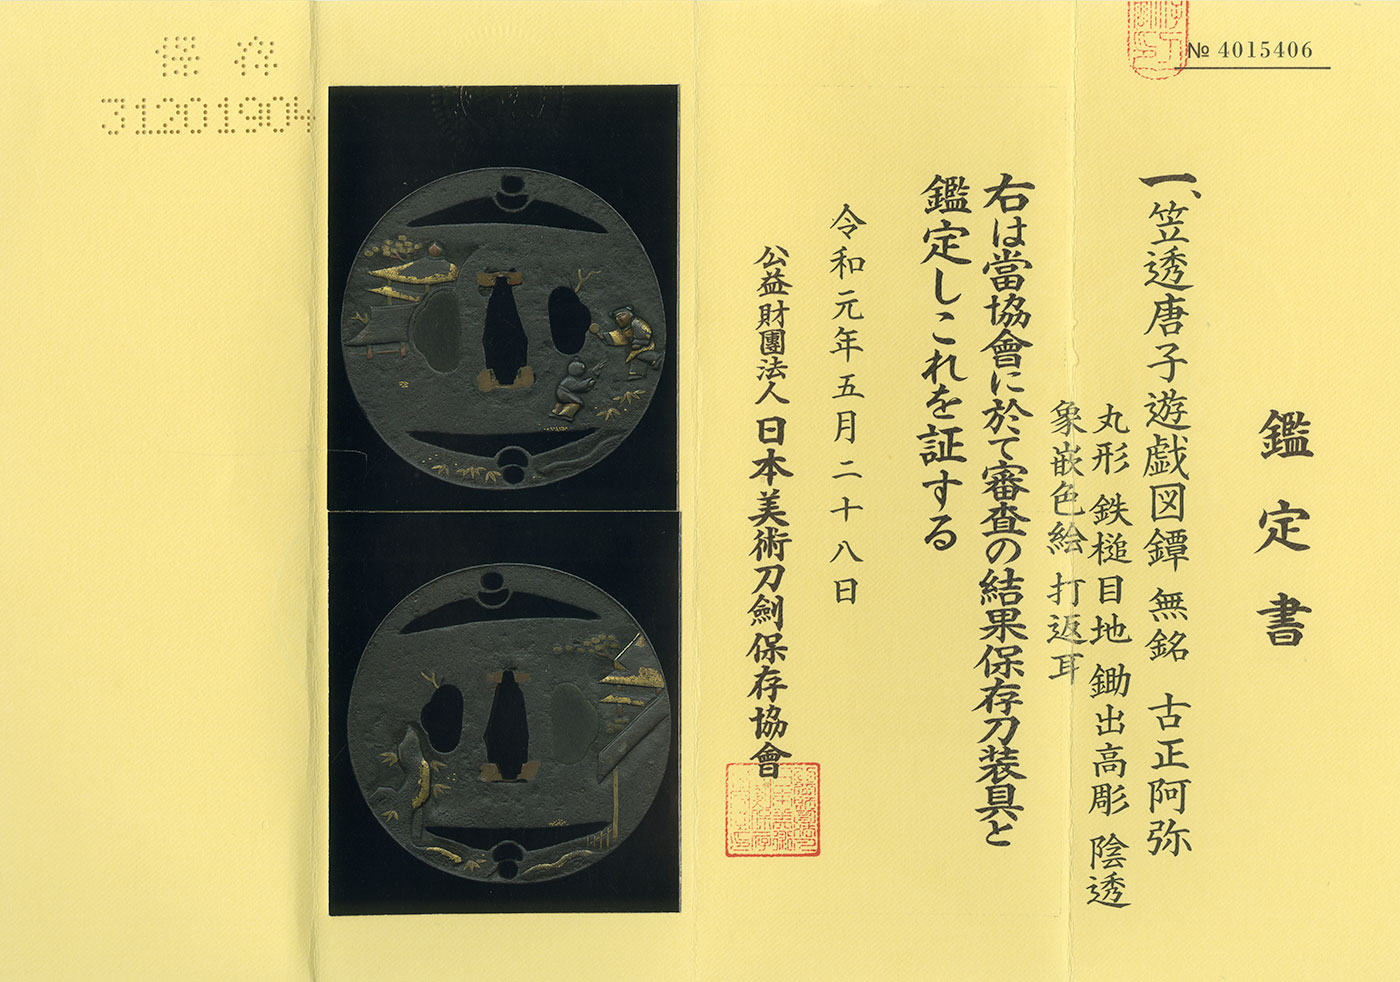 № 4015406
鑑定書
一、笠透唐子遊戯図鐔 無銘 古正阿弥
丸形 鉄槌目地 鋤出高彫 陰透
象嵌色絵 打返耳
右は當協會に於て審査の結果保存刀装具と
鑑定しこれを証する
令和元年五月二十八日
公益財團法人 日本美術刀劍保存協會
保存
31201904